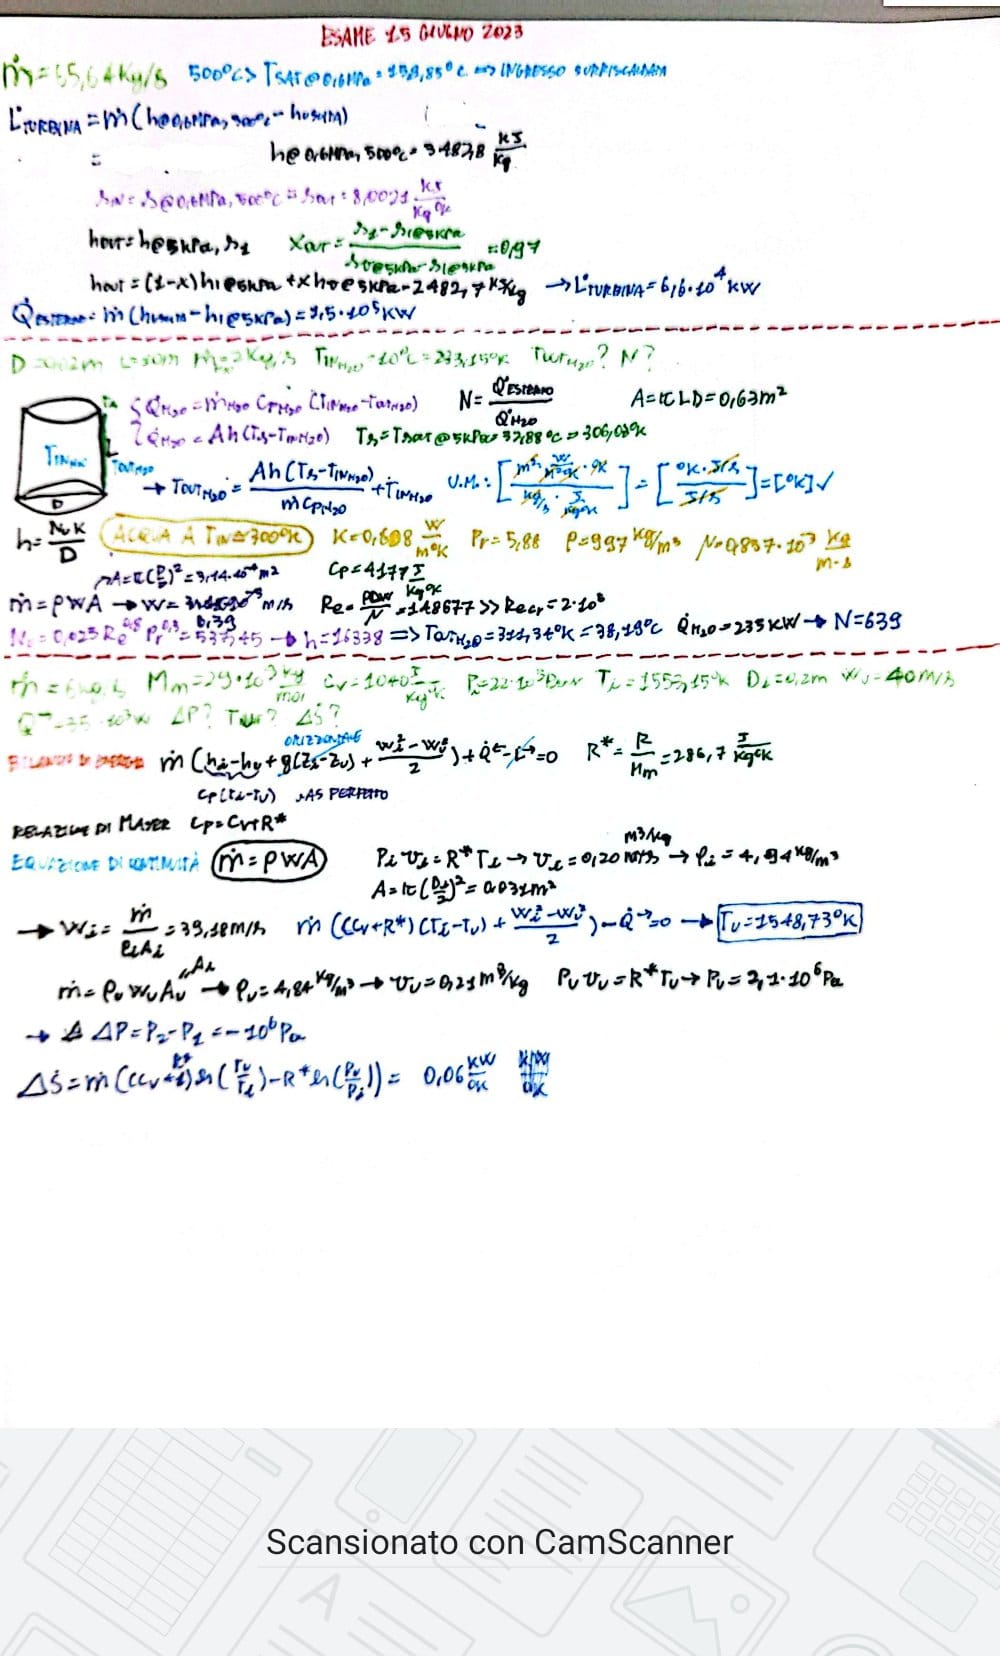 ESAME 15 GIUGNO 2023
ṁ=65,64 Kg/s 500°C > TSAT@0,6MPa = 158,85°C => INGRESSO SURRISCALDATA
L̇TURBINA = ṁ(h@0,6MPa,500°C - h@5kPa)
=
h@0,6MPa, 500°C = 3482,8 KJ/Kg
sIN = s@0,6MPa, 500°C = sout = 8,0021 KJ/Kg°K
hout = h@5kPa, s1 Xout = (s1 - sl@5kPa)/(sv@5kPa - sl@5kPa) = 0,97
hout = (1-x)hl@5kPa + xhv@5kPa = 2482,7 KJ/Kg → L̇TURBINA = 6,6·10⁴ KW
Q̇ESTERNO = ṁ(h - hl@5kPa) = 1,5·10⁵ KW
D=0,02m L=10m ṁ=2Kg/s TINH2O = 10°C = 283,15°K TOUTH2O? N?
{ Q̇H2O = ṁH2O CPH2O (TINH2O - TOUTH2O) N = Q̇ESTERNO/Q̇H2O A = πLD = 0,63m²
Q̇H2O = Ah(Ts - TINH2O) Ts = Tsat@5kPa = 32,88°C = 306,03°K
TINH2O TOUTH2O D
→ TOUTH2O = Ah(Ts - TINH2O)/ṁCPH2O + TINH2O U.M.: [m² W/m²°K °K / Kg/s J/Kg°K] = [°K·J/s / J/s] = [°K] ✓
h = NuK/D ACQUA A TIN ≅ 300°K K=0,608 W/m°K Pr = 5,88 ρ=997 Kg/m³ μ=0,857·10⁻³ Kg/m·s
A=π(D/2)² = 3,14·10⁻⁴ m² Cp = 4177 J/Kg°K
ṁ = ρWA → W = 6,39 m/s Re = ρDW/μ = 148677 >> Recr = 2·10³
Nu = 0,023 Re^0,8 Pr^0,3 = 537,45 → h=16338 => TOUTH2O = 311,34°K = 38,19°C Q̇H2O = 235 KW → N=639
ṁ = 6 Kg/s Mm = 29·10⁻³ Kg/mol Cv = 1040 J/Kg°K Ti = 1553,15°K Di = 0,2m Wu = 40m/s
ΔP? Tu? ΔṠ?
BILANCIO DI ENERGIA ṁ(hi - hu + g(Zi - Zu) + (Wi² - Wu²)/2) + Q̇← - L̇→ = 0 R* = R/Mm = 286,7 J/Kg°K
ORIZZONTALE
Cp(Ti-Tu) GAS PERFETTO
RELAZIONE DI MAYER Cp = Cv+R*
EQUAZIONE DI CONTINUITÀ ṁ = ρWA Pi vi = R* Ti → vi = 0,20 m³/Kg → ρi = 4,94 Kg/m³
A = π(Di/2)² = 0.031m²
→ Wi = ṁ/ρiAi = 39,18m/s ṁ((Cv+R*)(Ti-Tu) + (Wi² - Wu²)/2) - Q̇→ = 0 → Tu = 1548,73°K
ṁ = ρu Wu Au → ρu = 4,84 Kg/m³ → vu = 0,21 m³/Kg Pu vu = R* Tu → Pu = 2,1·10⁶ Pa
→ ΔP = P2 - P1 = -10⁶ Pa
ΔṠ = ṁ((Cv+R*)ln(Tu/Ti) - R* ln(Pu/Pi)) = 0,06 KW/°K
Scansionato con CamScanner